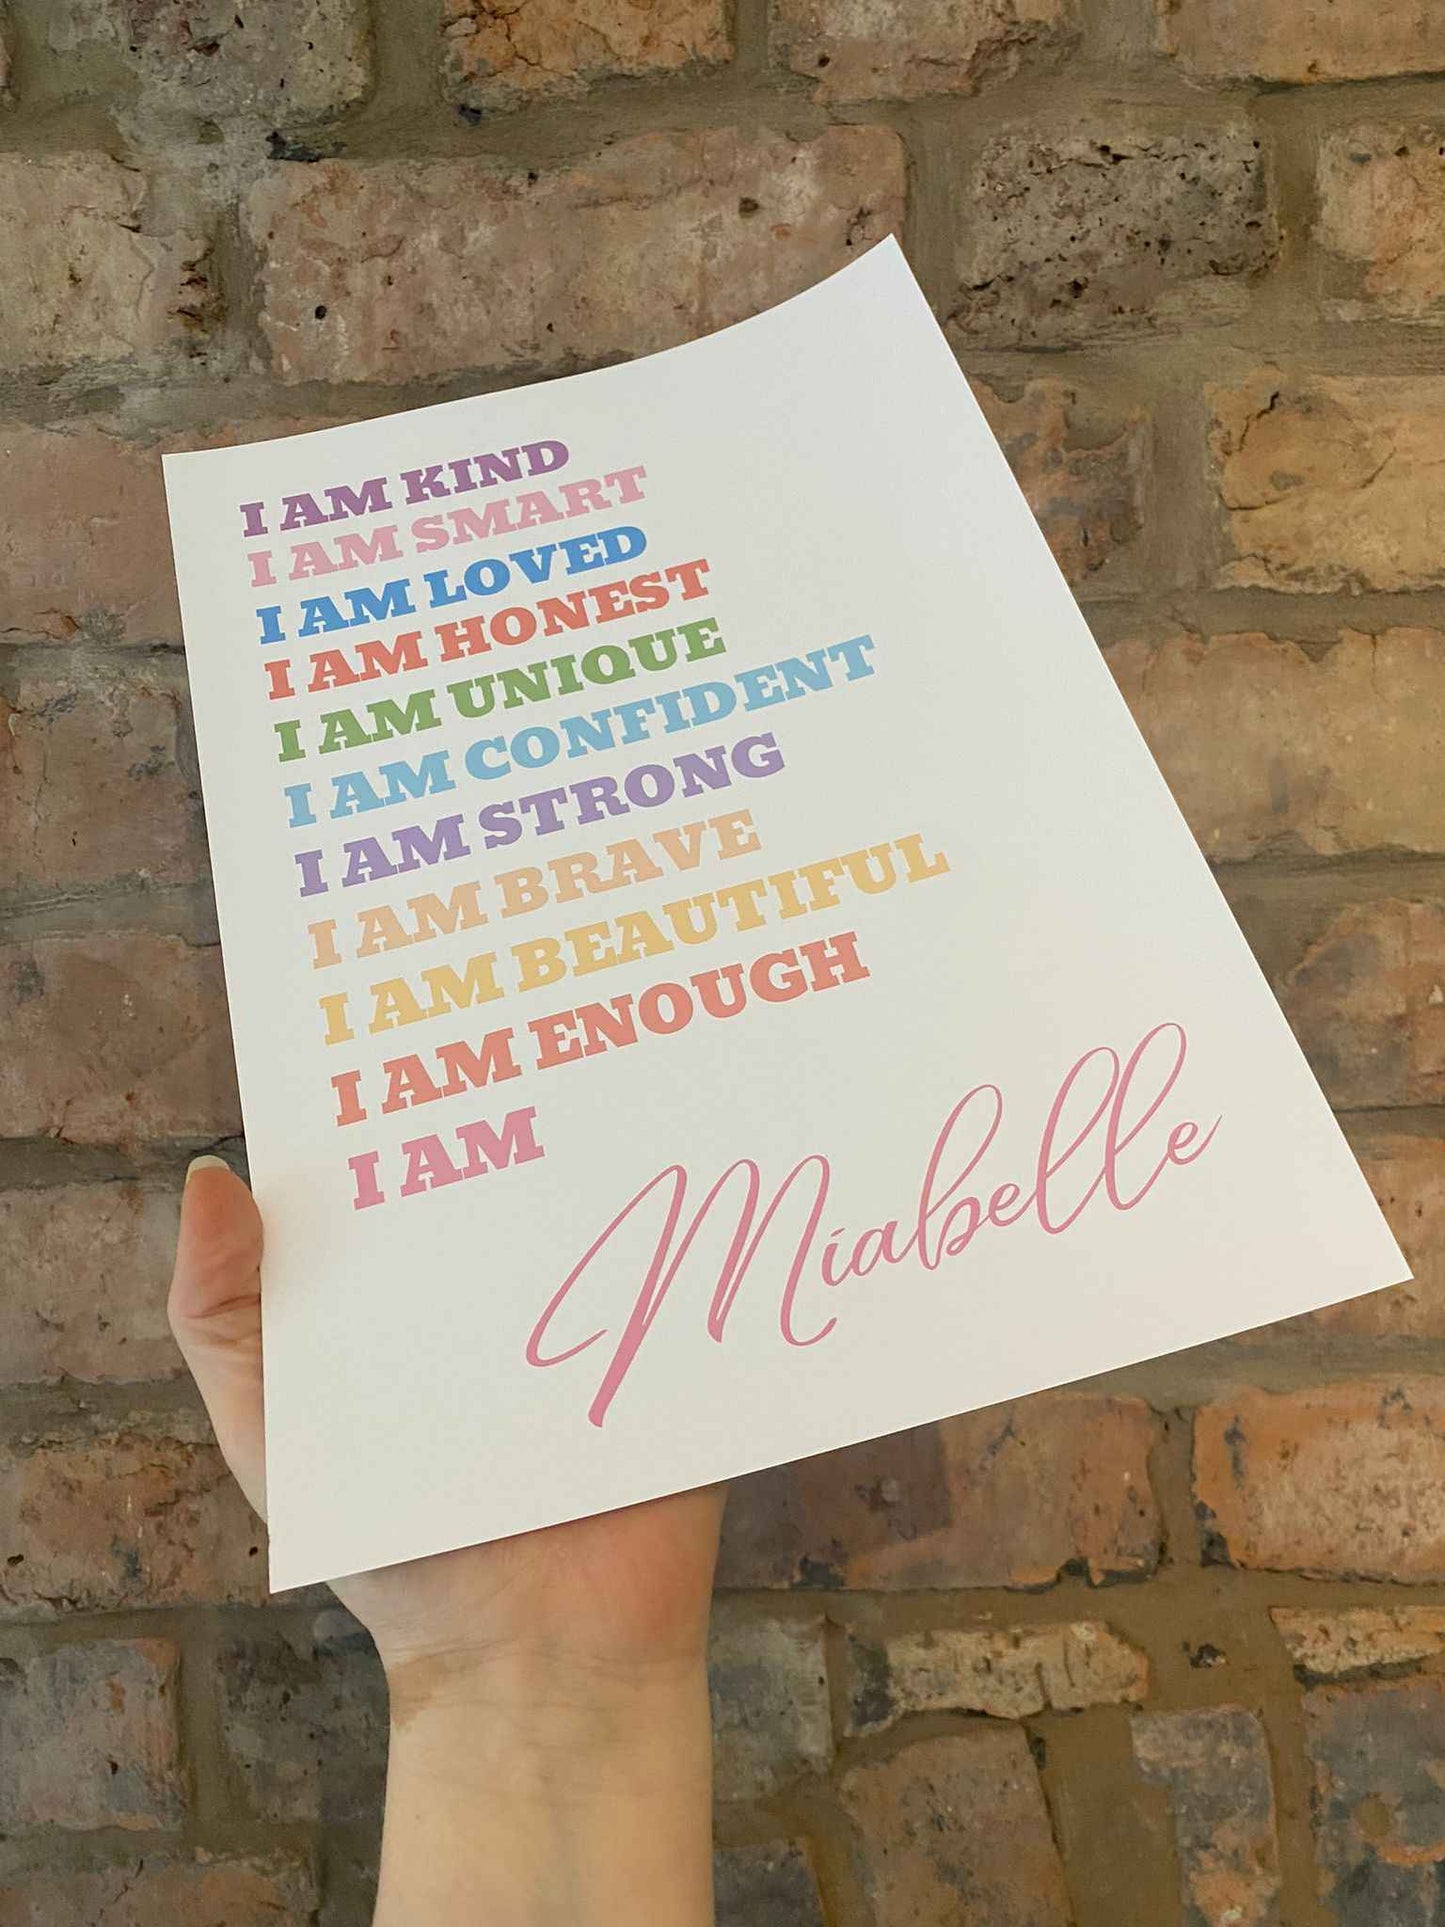 I AM KIND
I AM SMART
I AM LOVED
I AM HONEST
I AM UNIQUE
I AM CONFIDENT
I AM STRONG
I AM BRAVE
I AM BEAUTIFUL
I AM ENOUGH
I AM
Miabelle